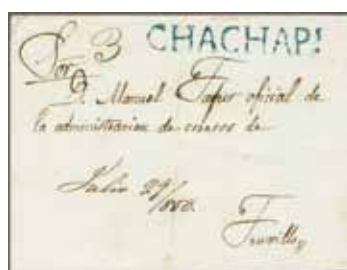 Sor. 3 CHACHAP!
D. Manuel Tafur oficial de
la administracion de correos de
Julio 29/
Trujillo